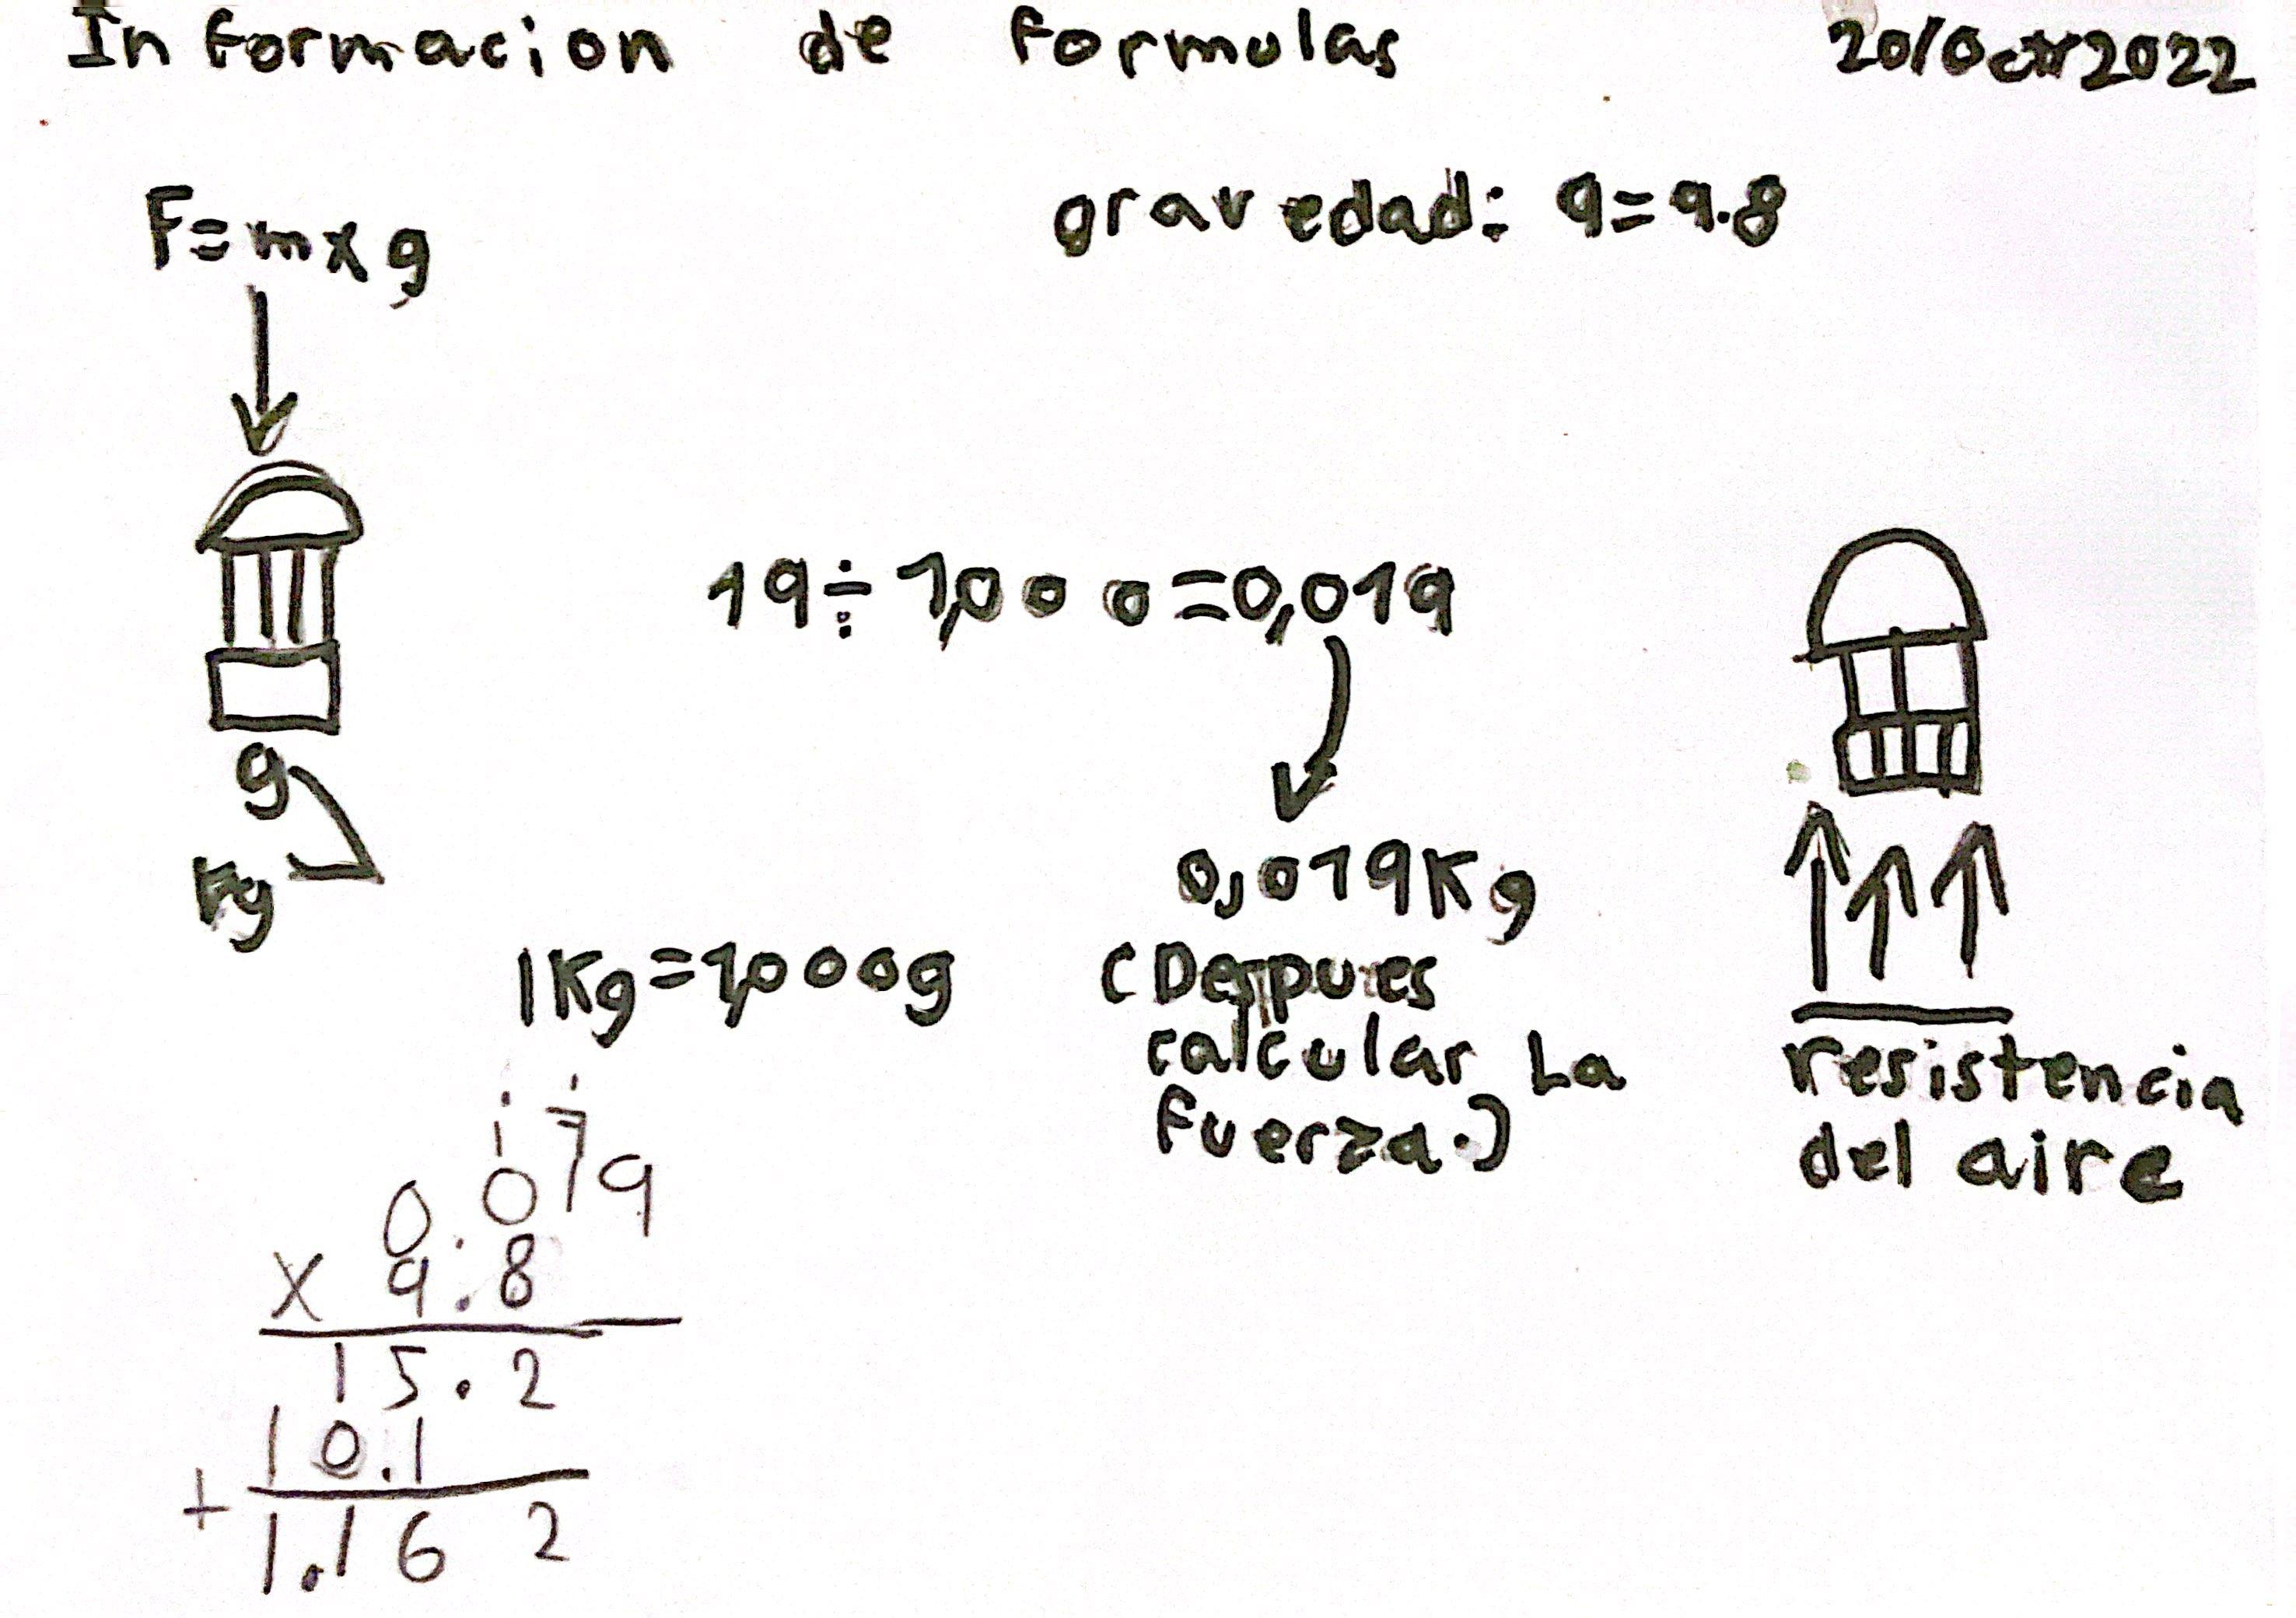 Informacion de formulas 20/Oct/2022
F=mxg gravedad: g=9.8
19÷1,000=0,019
g
Kg
0,019Kg
1Kg=1,000g
(Despues
calcular La
fuerza.)
resistencia
del aire
1 7
0.019
x 9.8
15.2
10.1
+
1.162